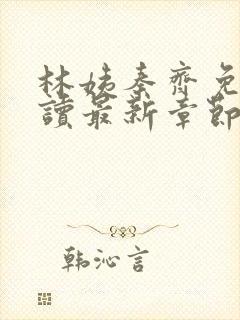 林姨秦齊免
讀最新章節
韩沁言